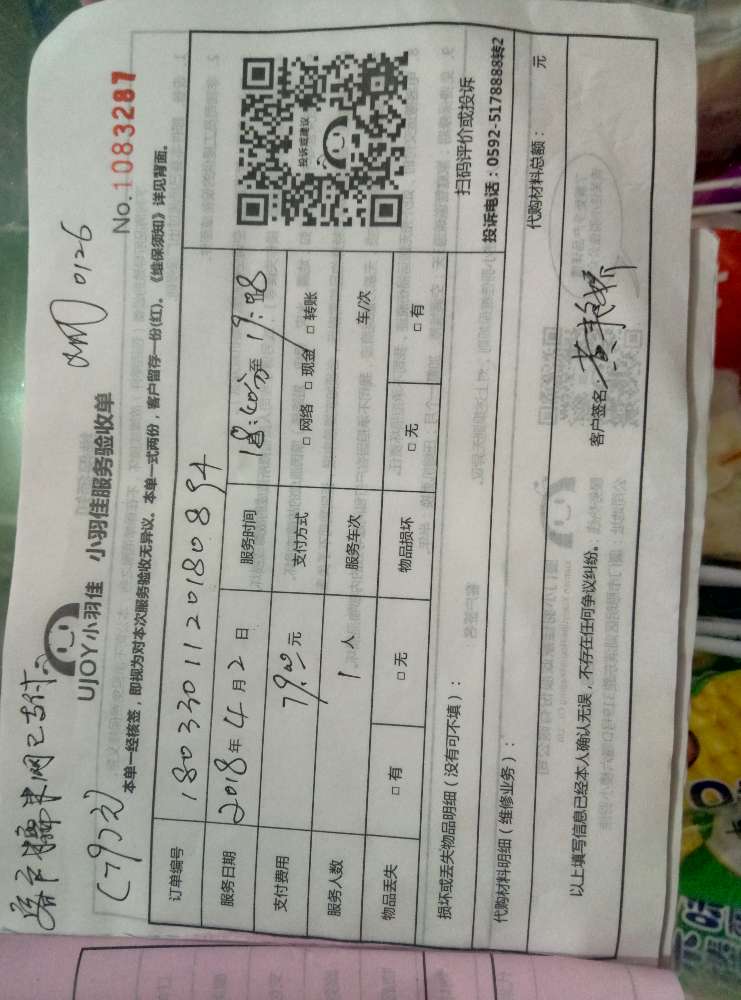 客户 网已付
(79元)
UJOY小羽佳 小羽佳服务验收单
0126
No.1083287
本单一经核签，即视为对本次服务验收无异议。本单一式两份，客户留存一份(红)。《维保须知》详见背面。
订单编号 1803301120180894
服务日期 2018年4月2日 服务时间 18:40分至19:08
支付费用 79.00元 支付方式 □网络 □现金 □转账
服务人数 1人 服务车次 车/次
物品丢失 □有 □无 物品损坏 □无 □有
投诉或建议
扫码评价或投诉
投诉电话：0592-5178888转2
损坏或丢失物品明细（没有可不填）：
代购材料明细（维修业务）： 代购材料总额： 元
以上填写信息已经本人确认无误，不存在任何争议纠纷。 客户签名：